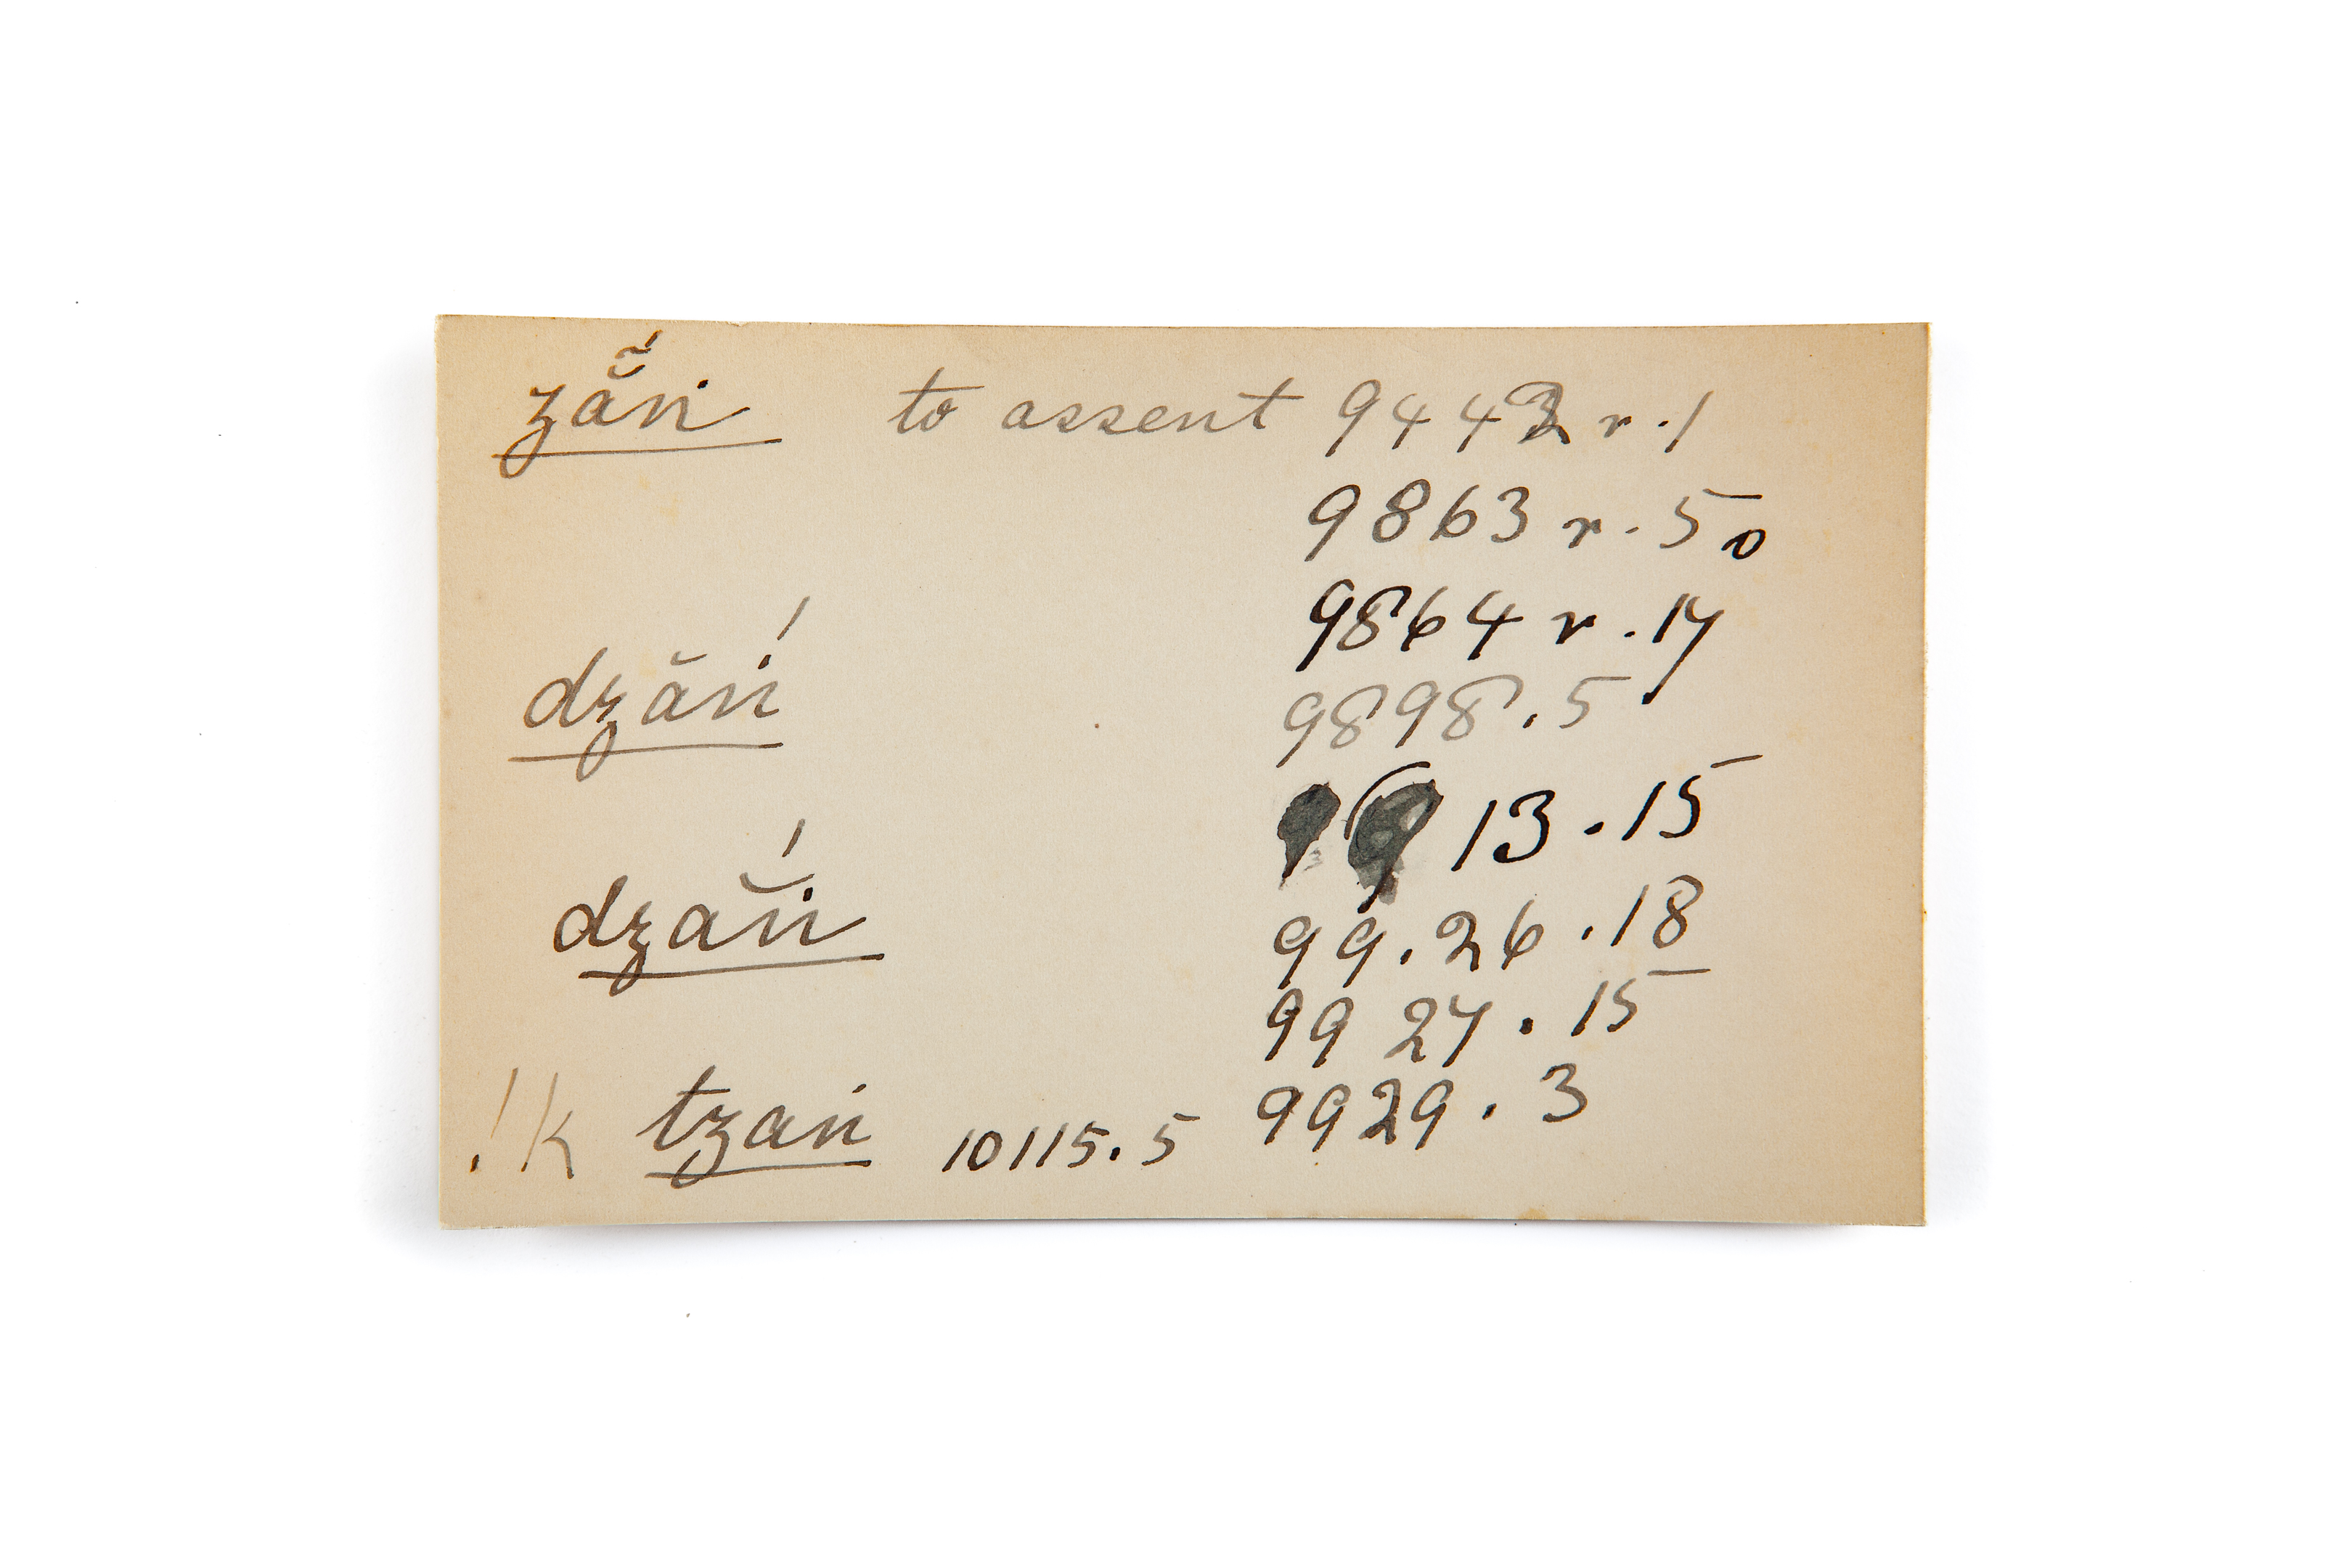 zä̆ṅ to assent 9442 r.1
9863 r.50
9864 r.17
dzăṅ́ 9898.5
9913.15
dzăṅ́ 99.26.18
9927.15
!k tzaṅ 10115.5 9929.3